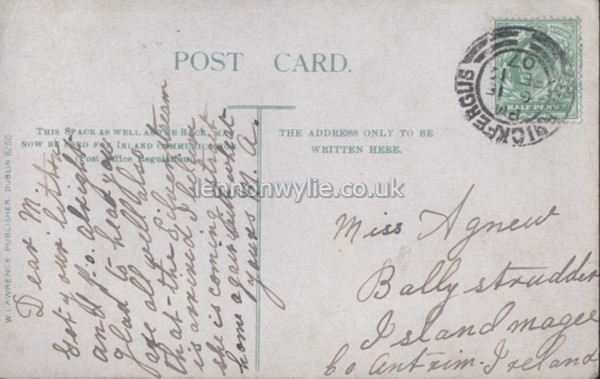 POST CARD.
THIS SPACE AS WELL AS THE BACK
NOW BE USED FOR INLAND COMMUNICATION
Post Office Regulation
THE ADDRESS ONLY TO BE
WRITTEN HERE.
HALF PENNY
CKFERGUS
07
lennonwylie.co.uk
W. LAWRENCE, PUBLISHER, DUBLIN
Dear M
Got your letter
and P.O. alright
glad to hear you
are all well also
that the Silverstream
is arrived I hope
she is coming
home again with what
yours M. A.
Miss Agnew
Ballystrudder
Islandmagee
Co Antrim. Ireland